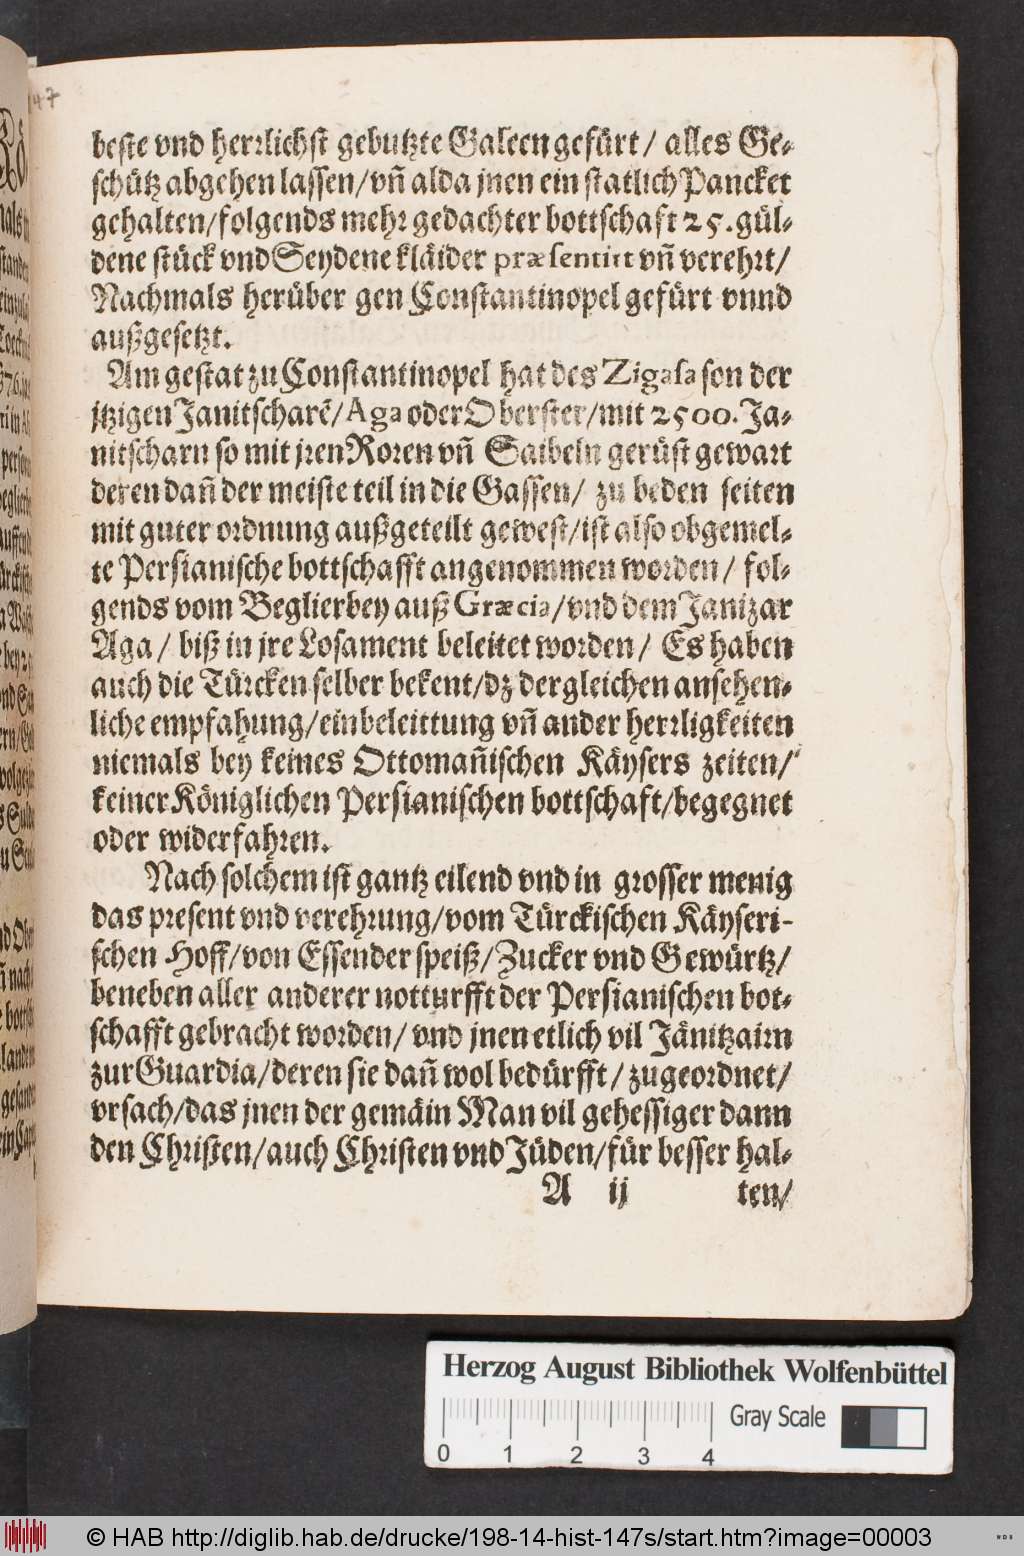 47
beste vnd herrlichst gebutzte Galeen gefürt / alles Ge-
schütz abgehen lassen/vñ alda jnen ein statlich Pancket
gehalten/folgends mehr gedachter bottschaft 25. gül-
dene stück vnd Seydene kläider præsentirt vñ verehrt/
Nachmals herüber gen Constantinopel gefürt vnnd
außgesetzt.
Am gestat zu Constantinopel hat des Zigala son der
jtzigen Janitscharē/Aga oder Oberster/mit 2500. Ja-
nitscharn so mit jren Roren vñ Saibeln gerüst gewart
deren dañ der meiste teil in die Gassen/ zu beden seiten
mit guter ordnung außgeteilt gewest/ist also obgemel-
te Persianische bottschafft angenommen worden/ fol-
gends vom Beglierbey auß Græcia/vnd dem Janizar
Aga/ biß in jre Losament beleitet worden/ Es haben
auch die Türcken selber bekent/dz dergleichen ansehen-
liche empfahung/einbeleittung vñ ander herrligkeiten
niemals bey keines Ottomañischen Käysers zeiten/
keiner Königlichen Persianischen bottschaft/begegnet
oder widerfahren.
Nach solchem ist gantz eilend vnd in grosser menig
das present vnd verehrung/vom Türckischen Käyseri-
schen Hoff/von Essender speiß/Zucker vnd Gewürtz/
beneben aller anderer notturfft der Persianischen bot-
schafft gebracht worden/ vnd jnen etlich vil Jänitzairn
zur Guardia/deren sie dañ wol bedürfft/ zugeordnet/
vrsach/das jnen der gemäin Man vil gehessiger dann
den Christen/auch Christen vnd Jüden/für besser hal-
A ij ten/
Herzog August Bibliothek Wolfenbüttel
Gray Scale
0 1 2 3 4
© HAB http://diglib.hab.de/drucke/198-14-hist-147s/start.htm?image=00003